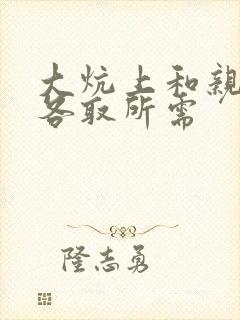 大炕上和親
各取所需
隆志勇